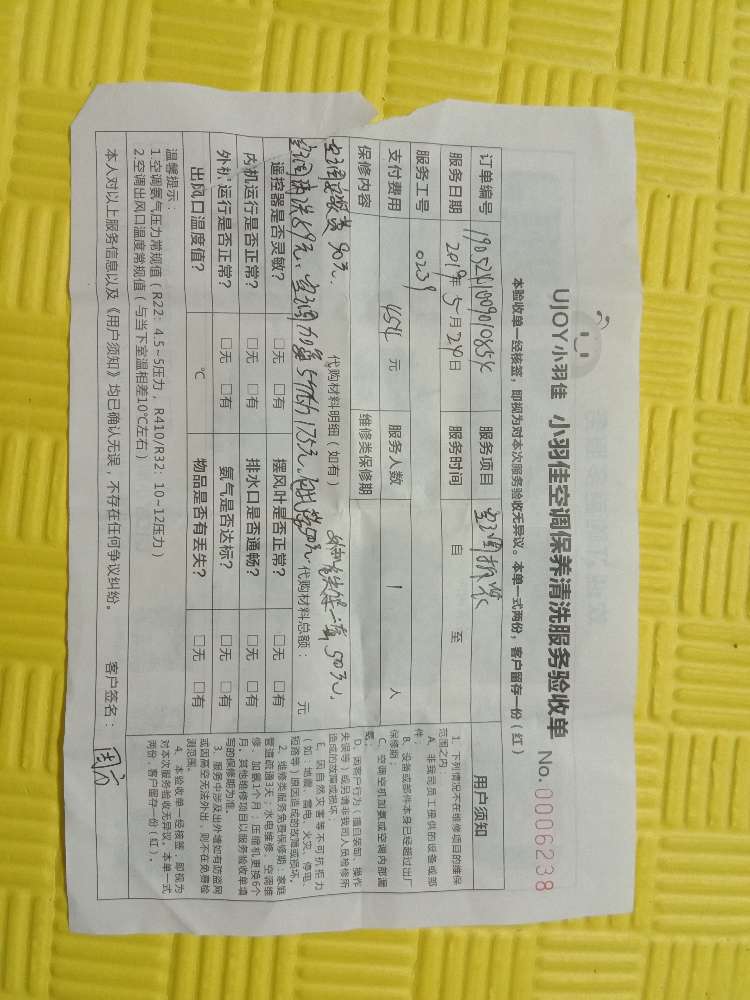 UJOY小羽佳 小羽佳空调保养清洗服务验收单 No.0006238
本验收单一经核签，即视为对本次服务验收无异议。本单一式两份，客户留存一份（红）
订单编号 服务项目 空调拆装
服务日期 2019年5月24日 服务时间 自 至
服务工号 0239
支付费用 454 元 服务人数 1 人
保修内容 维修类保修期
代购材料明细（如有）
90元. 50元.
代购材料总额： 元
遥控器是否灵敏? □无 □有 摆风叶是否正常? □无 □有
内机运行是否正常? □无 □有 排水口是否通畅? □无 □有
外机运行是否正常? □无 □有 氨气是否达标? □无 □有
出风口温度值? ℃ 物品是否有丢失? □无 □有
温馨提示：
1.空调氨气压力常规值（R22：4.5~5压力，R410/R32：10~12压力）
2.空调出风口温度常规值（与当下室温相差10℃左右）
本人对以上服务信息以及《用户须知》均已确认无误，不存在任何争议纠纷。 客户签名：
用户须知
1. 下列情况不在维修项目的维保
范围之内：
A. 非我司员工提供的设备或部
件；
B. 设备或部件本身已经超过出厂
保修期；
C. 空调空机加氨或空调内部漏
氨；
D. 因客户行为（擅自装卸、操作
失误等）或另请非我司人员检修所
造成的故障或损坏；
E. 因自然灾害等不可抗柜力
（如：地震、雷电、火灾、停电、
短路等）原因造成的故障或损坏。
2. 维修类服务免费保修期：家庭
管道疏通3天；水电维修、空调维
修、加氨1个月；压缩机更换6个
月。其他维修项目以服务验收单填
写的保修期为准。
3. 服务中涉及出外墙如有防盗网
或因高空无法外出，则不在免费检
测范围。
4. 本验收单一经核签，即视为
对本次服务验收无异议。本单一式
两份，客户留存一份（红）。